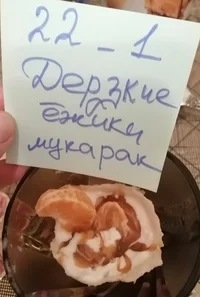 22-1
Дерзкие
ёжики
мукарак